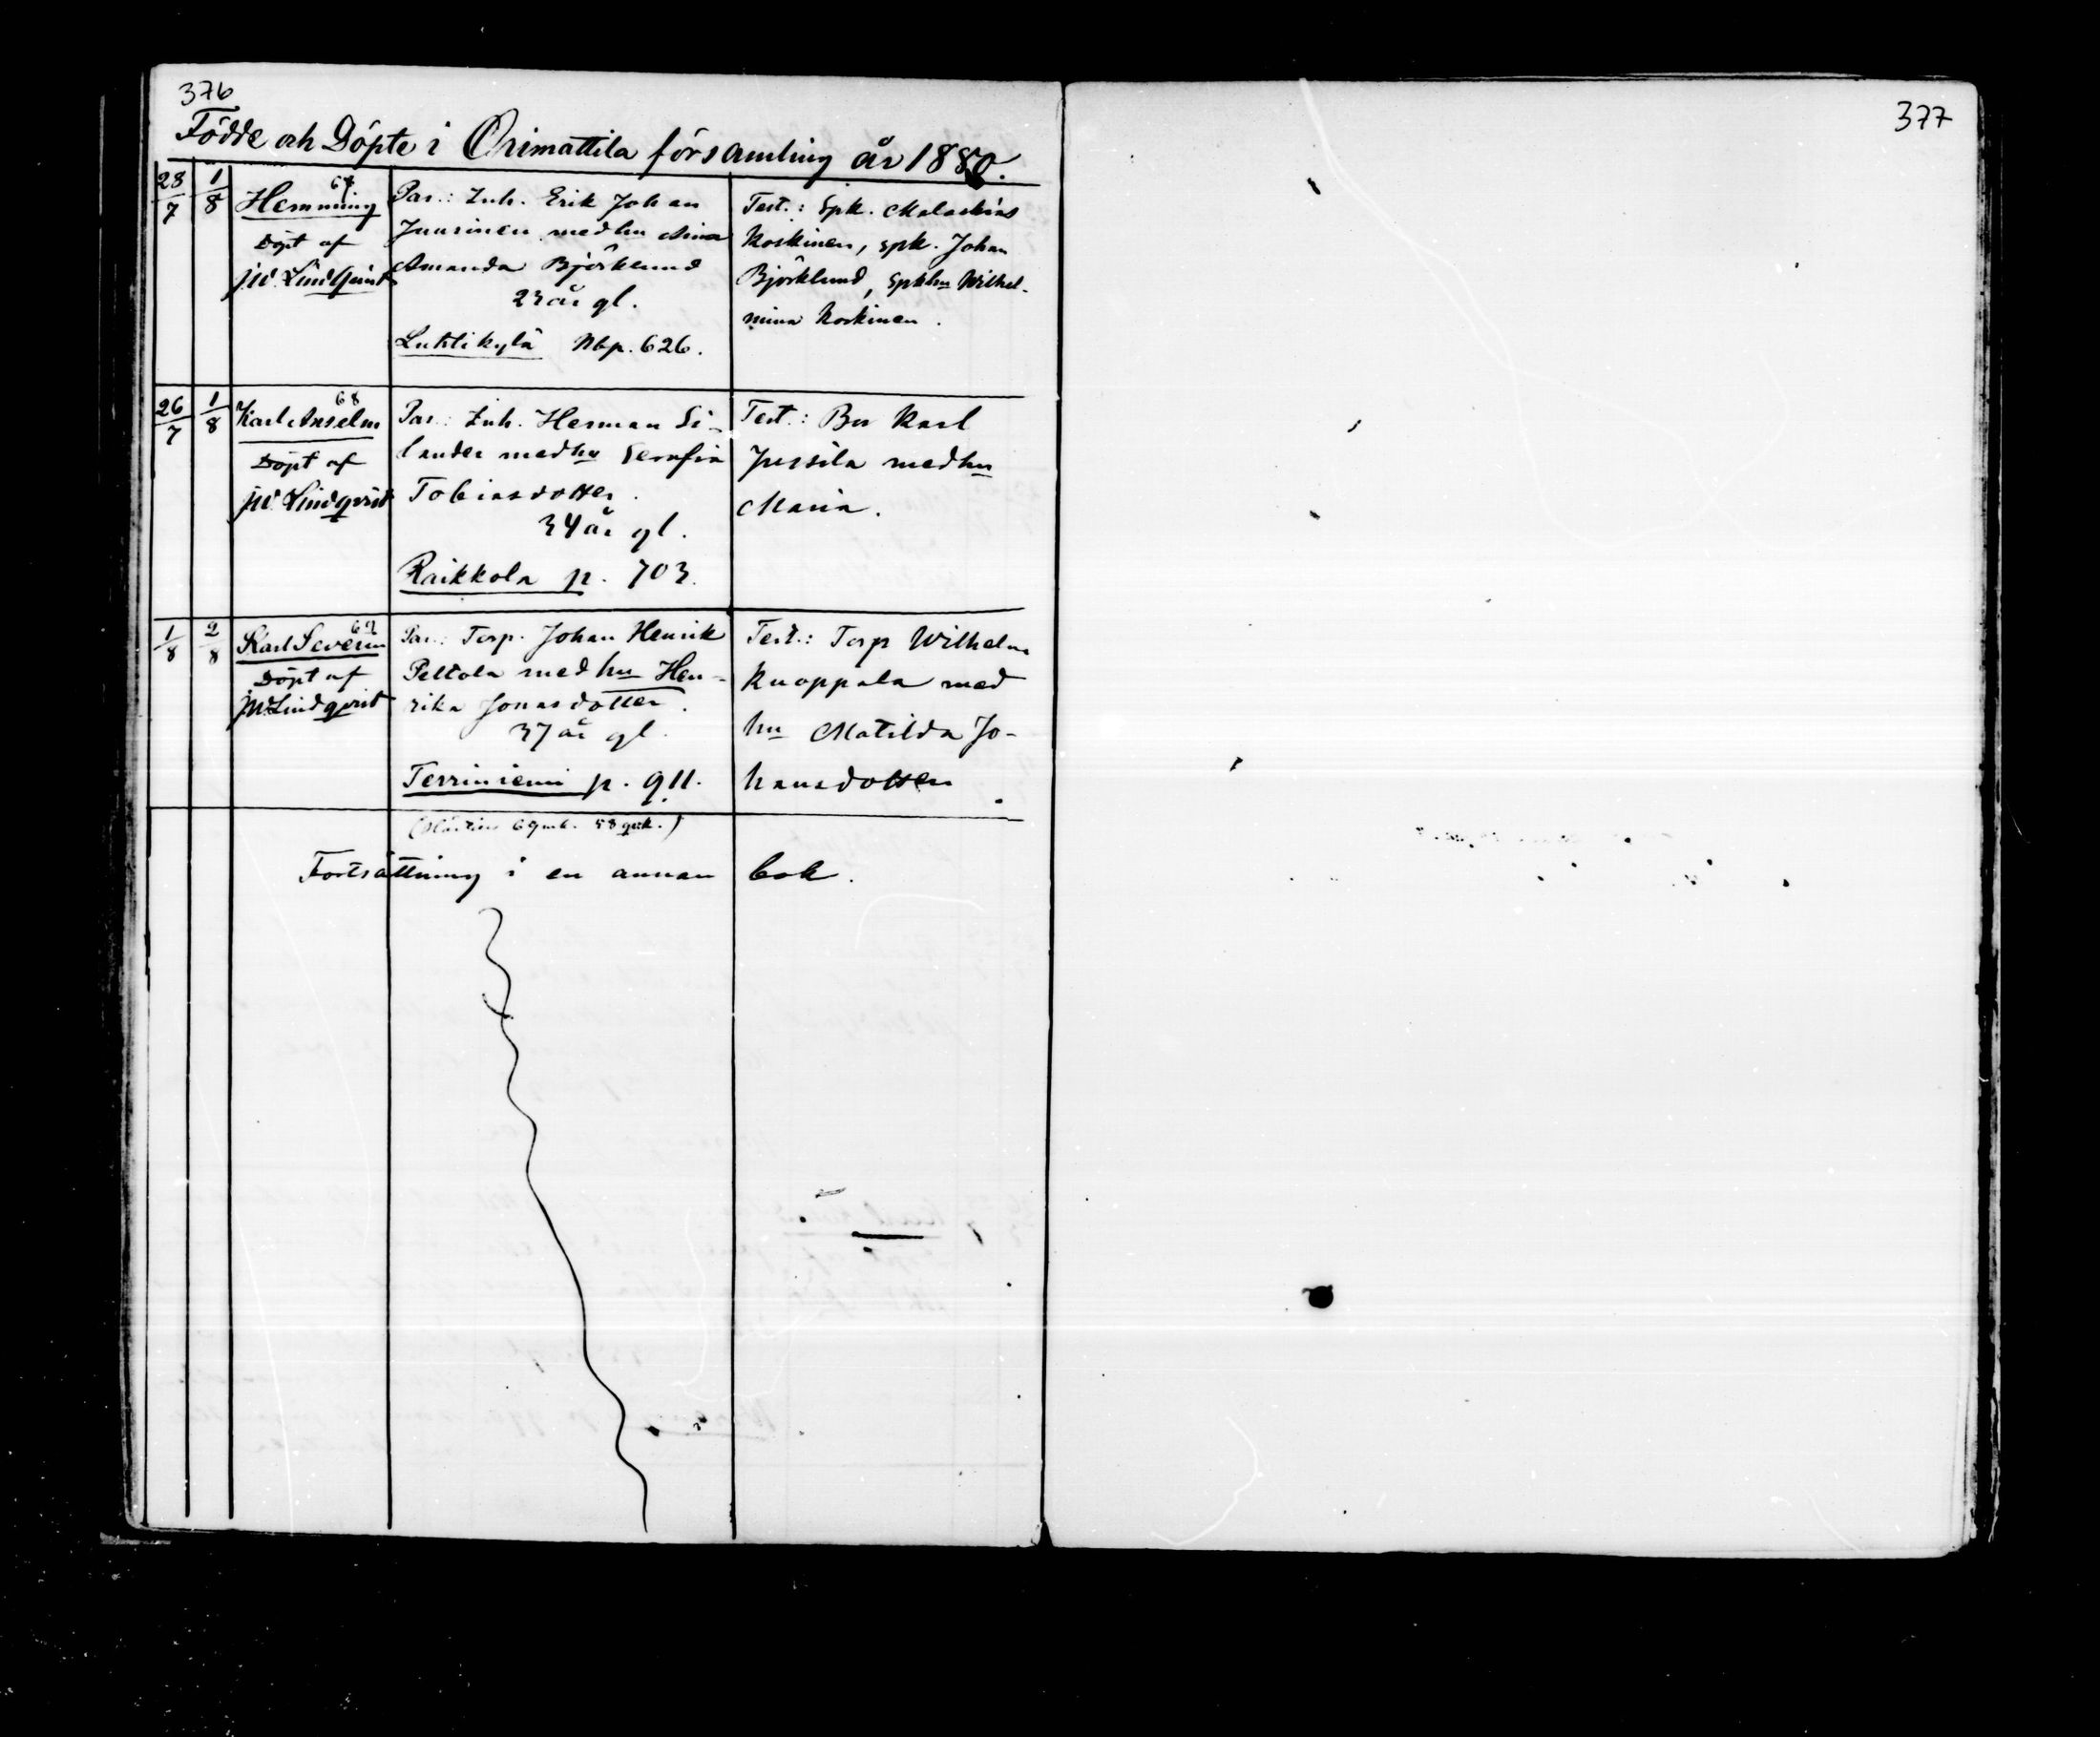 376
377
Födde och Döpte i Orimattila församling år 1880.
28/7 1/8 Hemming 67
Döpt af
JW. Lindqvist
Par.: Inh. Erik Johan
Juusinen med hu
Amanda Björklund
23 år gl.
Luhtikylä Nbp. 626.
Test.: Spk. Malakias
Koskinen, spk. Johan
Björklund, spkhu Wilhel-
mina Koskinen.
26/7 1/8 Karl Anselm 68
Döpt af
JW. Lindqvist
Par.: Inh. Herman Si-
lander med hu Serafia
Tobiasdotter.
34 år gl.
Raikkola p. 703.
Test.: Bo Karl
Jussila med hu
Maria.
1/8 2/8 Karl Severin 69
Döpt af
JW. Lindqvist
Par.: Torp. Johan Henrik
Peltola med hu Hen-
rika Jonasdotter.
37 år gl.
Terriniemi p. 911.
Test.: Torp Wilhelm
Kuoppala med
hu Matilda Jo-
hansdotter
(69 mk. 58 qvk.)
Fortsättning i en annan bok.